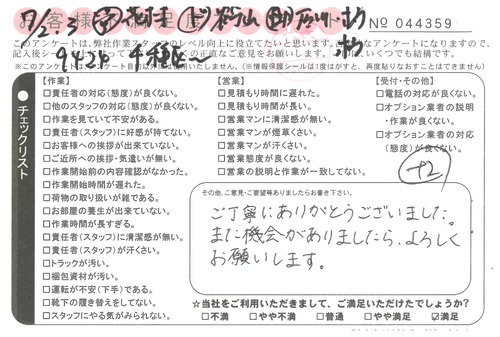 お客様満足度
№ 044359
このアンケートは、弊社作業スタッフのレベル向上に役立てたいと思います。
正直なご意見をお願いします。
いくつでも結構です。
※このアンケート
(※情報保護シールは1度はがすと、再度貼りなおすことはできません)
チェックリスト
【作業】
□責任者の対応(態度)が良くない。
□他のスタッフの対応(態度)が良くない。
□作業を見ていて不安がある。
□責任者(スタッフ)に好感が持てない。
□お客様への挨拶が出来ていない。
□ご近所への挨拶・気遣いが無い。
□作業開始前の内容確認がなかった。
□作業開始時間が遅れた。
□荷物の取り扱いが雑である。
□お部屋の養生が出来ていない。
□作業時間が長すぎる。
□責任者(スタッフ)に清潔感が無い。
□責任者(スタッフ)が汗くさい。
□トラックが汚い。
□梱包資材が汚い。
□運転が不安(下手)である。
□靴下の履き替えをしてない。
□スタッフにやる気がみられない。
【営業】
□見積もり時間に遅れた。
□見積もり時間が長い。
□営業マンに清潔感が無い。
□営業マンが煙草くさい。
□営業マンが汗くさい。
□営業態度が良くない。
□営業の説明と作業が一致してない。
【受付・その他】
□電話の対応が良くない。
□オプション業者の説明
・作業が良くない。
□オプション業者の対応
(態度)が良くない。
+2
その他、ご意見・ご要望等ありましたらお書き下さい。
ご丁寧にありがとうございました。
また機会がありましたら、よろしく
お願いします。
☆当社をご利用いただきまして、ご満足いただけたでしょうか?
□不満 □やや不満 □普通 □やや満足 ☑満足